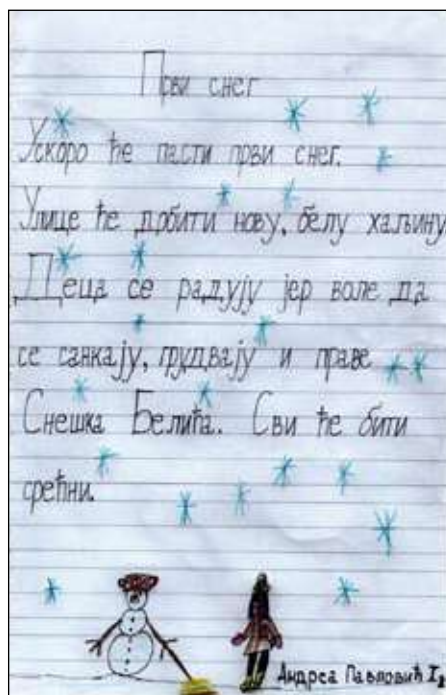 Први снег
Ускоро ће пасти први снег.
Улице ће добити нову, белу хаљину
Деца се радују јер воле да
се санкају, грудвају и праве
Снешка Белића. Сви ће бити
срећни.
Андреа Павловић I₂